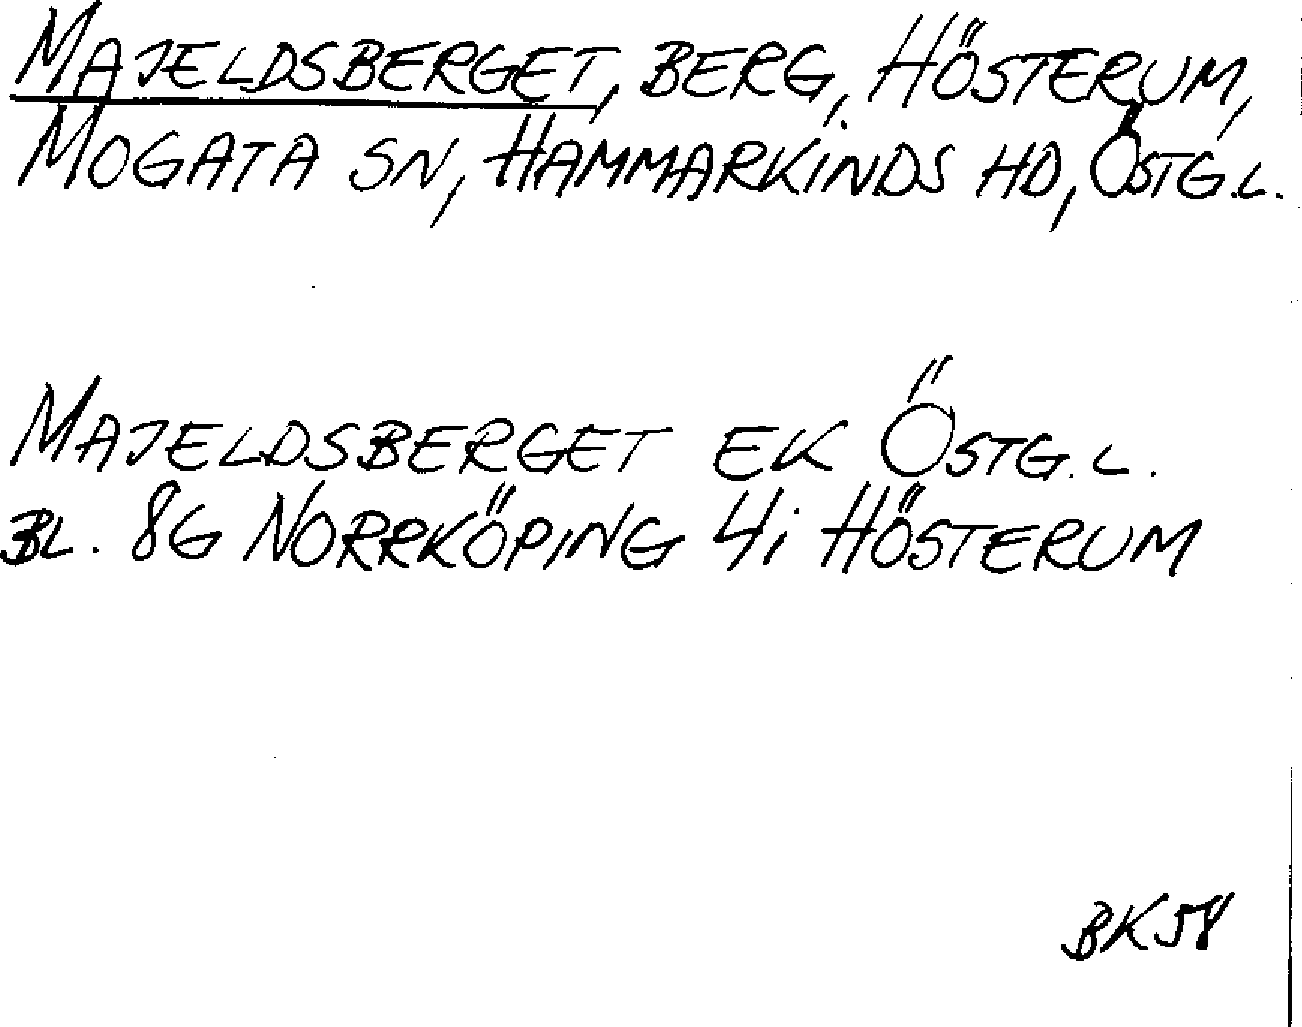 MAJELDSBERGET, BERG, HÖSTERUM,
MOGATA SN, HAMMARKINDS HD, ÖSTG.L.
MAJELDSBERGET EK ÖSTG.L.
BL. 8G NORRKÖPING 4i HÖSTERUM
BK58